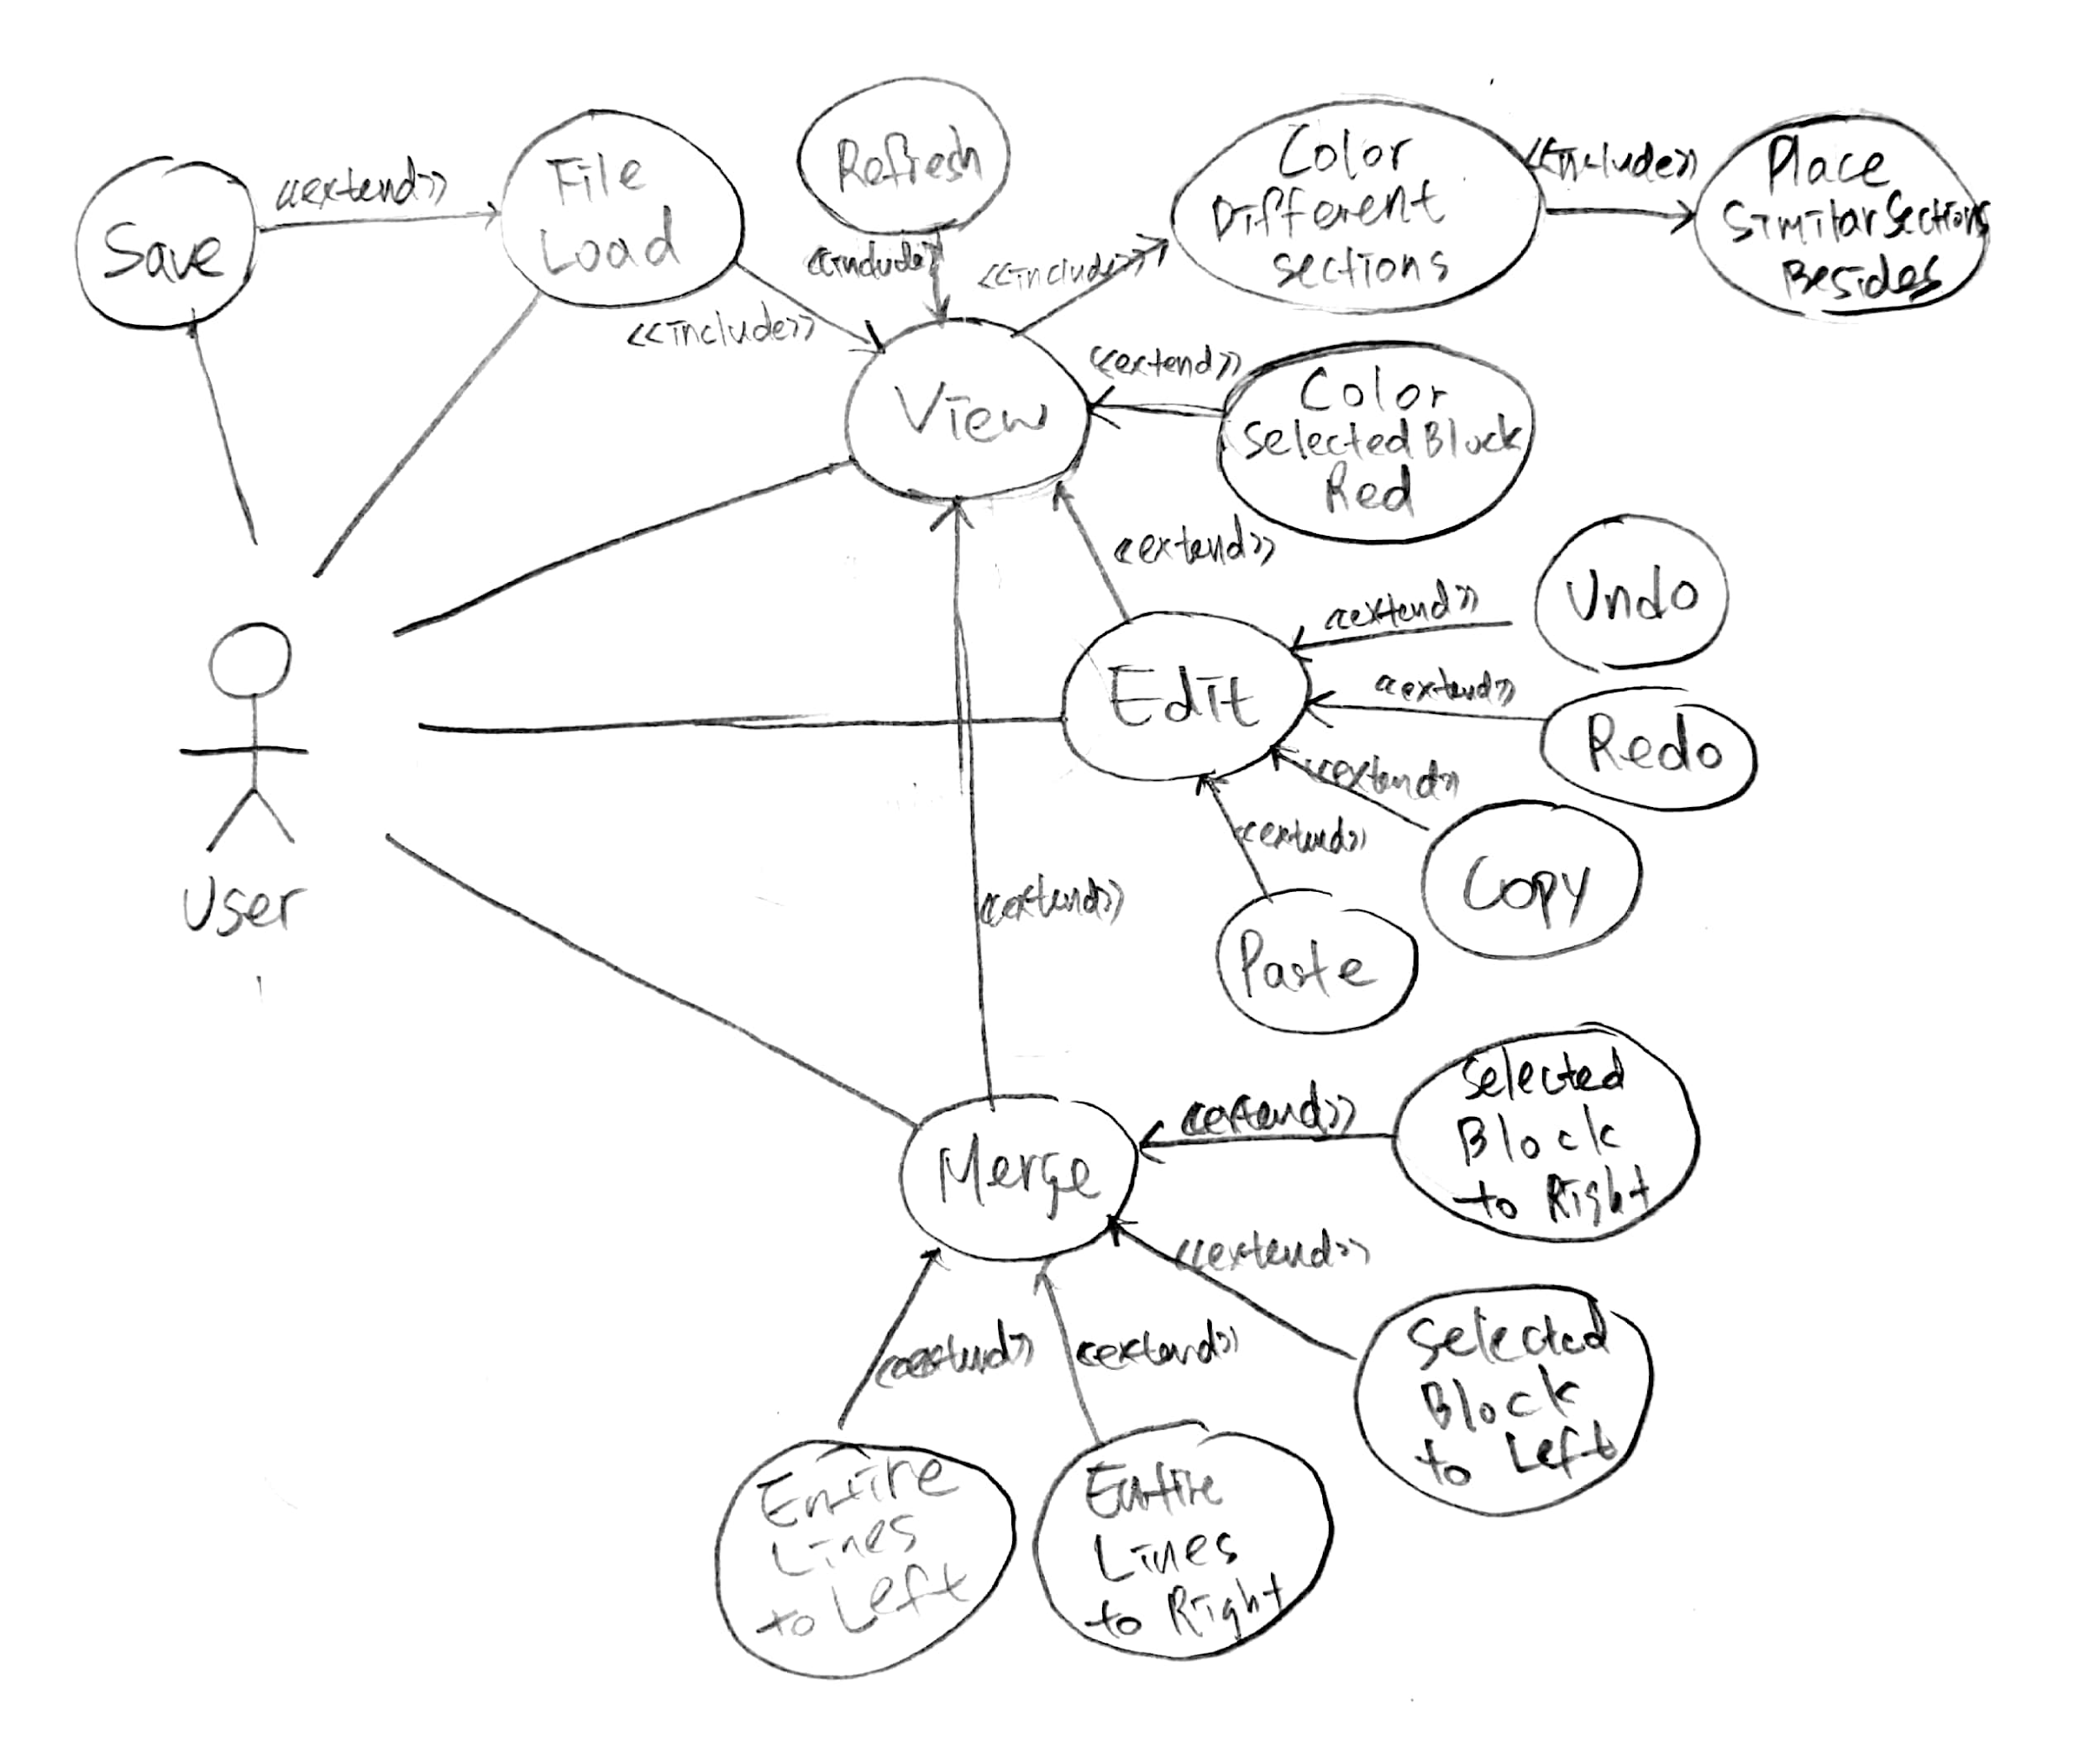 Save
<<extend>>
File
Load
Refresh
<<include>>
<<include>>
<<include>>
Color
Different
sections
<<include>>
Place
Similar Sections
Besides
View
<<extend>>
Color
Selected Block
Red
<<extend>>
Edit
<<extend>>
Undo
<<extend>>
Redo
<<extend>>
Copy
<<extend>>
Paste
User
<<extend>>
Merge
<<extend>>
Selected
Block
to Right
<<extend>>
Selected
Block
to Left
<<extend>>
Entire
Lines
to Left
<<extend>>
Entire
Lines
to Right